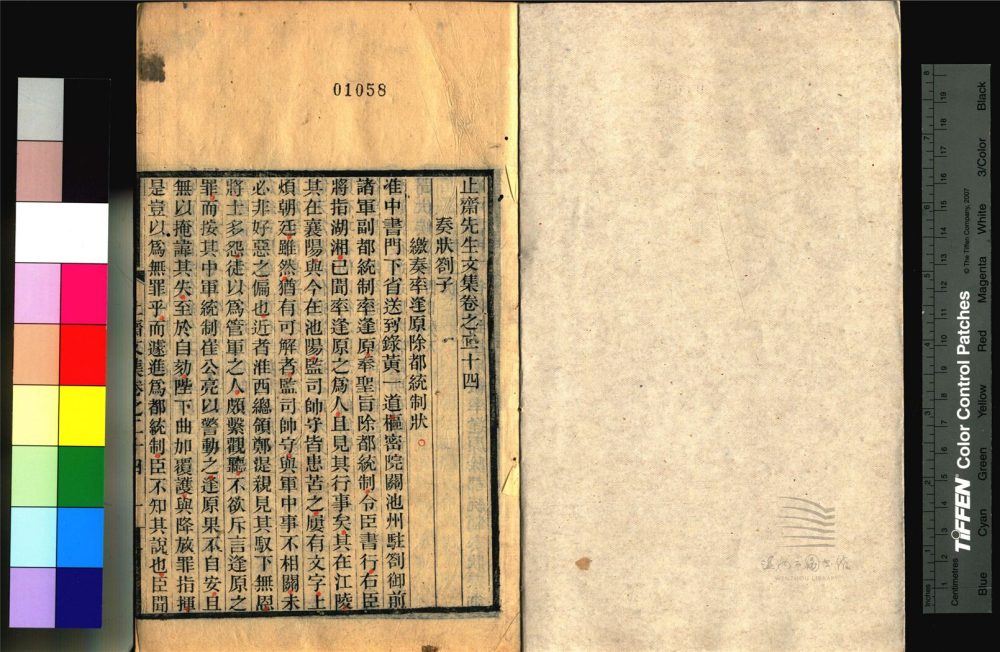 01058
止齋先生文集卷之二十四
奏狀劄子
繳奏率逢原除都統制狀
准中書門下省送到錄黃一道樞密院關池州駐劄御前
諸軍副都統制率逢原奉聖旨除都統制令臣書行右臣
將指湖湘已聞率逢原之為人且見其行事矣其在江陵
其在襄陽與今在池陽監司帥守皆患苦之屢有文字上
煩朝廷雖然猶有可解者監司帥守與軍中事不相關未
必非好惡之偏也近者淮西總領鄭湜親見其馭下無恩
將士多怨徒以為管軍之人頗繫觀聽不欲斥言逢原之
罪而按其中軍統制崔公亮以警動之逢原果不自安且
無以掩諱其失至於自劾陛下曲加覆護與降放罪指揮
是豈以為無罪乎而遽進為都統制臣不知其說也臣聞
WENZHOU LIBRARY
TIFFEN Color Control Patches
© The Tiffen Company, 2007
Centimetres
Inches
Blue
Cyan
Green
Yellow
Red
Magenta
White
3/Color
Black